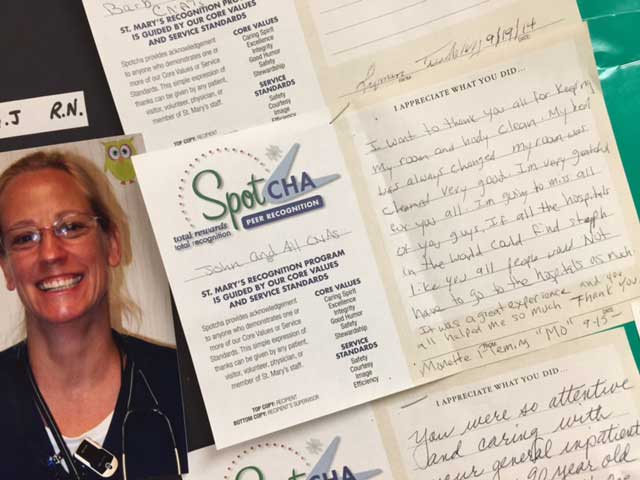 Barb
CNA's
ST. MARY'S RECOGNITION PROGRAM
IS GUIDED BY OUR CORE VALUES
AND SERVICE STANDARDS
Spotcha provides acknowledgement
to anyone who demonstrates one or
more of our Core Values or Service
Standards. This simple expression of
thanks can be given by any patient,
visitor, volunteer, physician, or
member of St. Mary's staff.
CORE VALUES
Caring Spirit
Excellence
Integrity
Good Humor
Safety
Stewardship
SERVICE
STANDARDS
Safety
Courtesy
Image
Efficiency
TOP COPY: RECIPIENT
9/19/14
.J R.N.
SPOTCHA
PEER RECOGNITION
total rewards
total recognition
John and All CNAs
ST. MARY'S RECOGNITION PROGRAM
IS GUIDED BY OUR CORE VALUES
AND SERVICE STANDARDS
Spotcha provides acknowledgement
to anyone who demonstrates one or
more of our Core Values or Service
Standards. This simple expression of
thanks can be given by any patient,
visitor, volunteer, physician, or
member of St. Mary's staff.
CORE VALUES
Caring Spirit
Excellence
Integrity
Good Humor
Safety
Stewardship
SERVICE
STANDARDS
Safety
Courtesy
Image
Efficiency
TOP COPY: RECIPIENT
BOTTOM COPY: RECIPIENT'S SUPERVISOR
I APPRECIATE WHAT YOU DID...
I want to thank you all for keep my
my room and body clean. My bed
was always changed my room was
cleaned very good. I'm very grateful
for you all. I'm going to miss all
of you guys. If all the hospitals
in the world could find
like you all people would Not
have to go to the hospitals as much
It was a great experience and you
all helped me so much Thank you
Fleming "MO" 9-15
I APPRECIATE WHAT YOU DID...
You were so attentive
and caring with
your general inpatient
90 year old
SPOTCHA